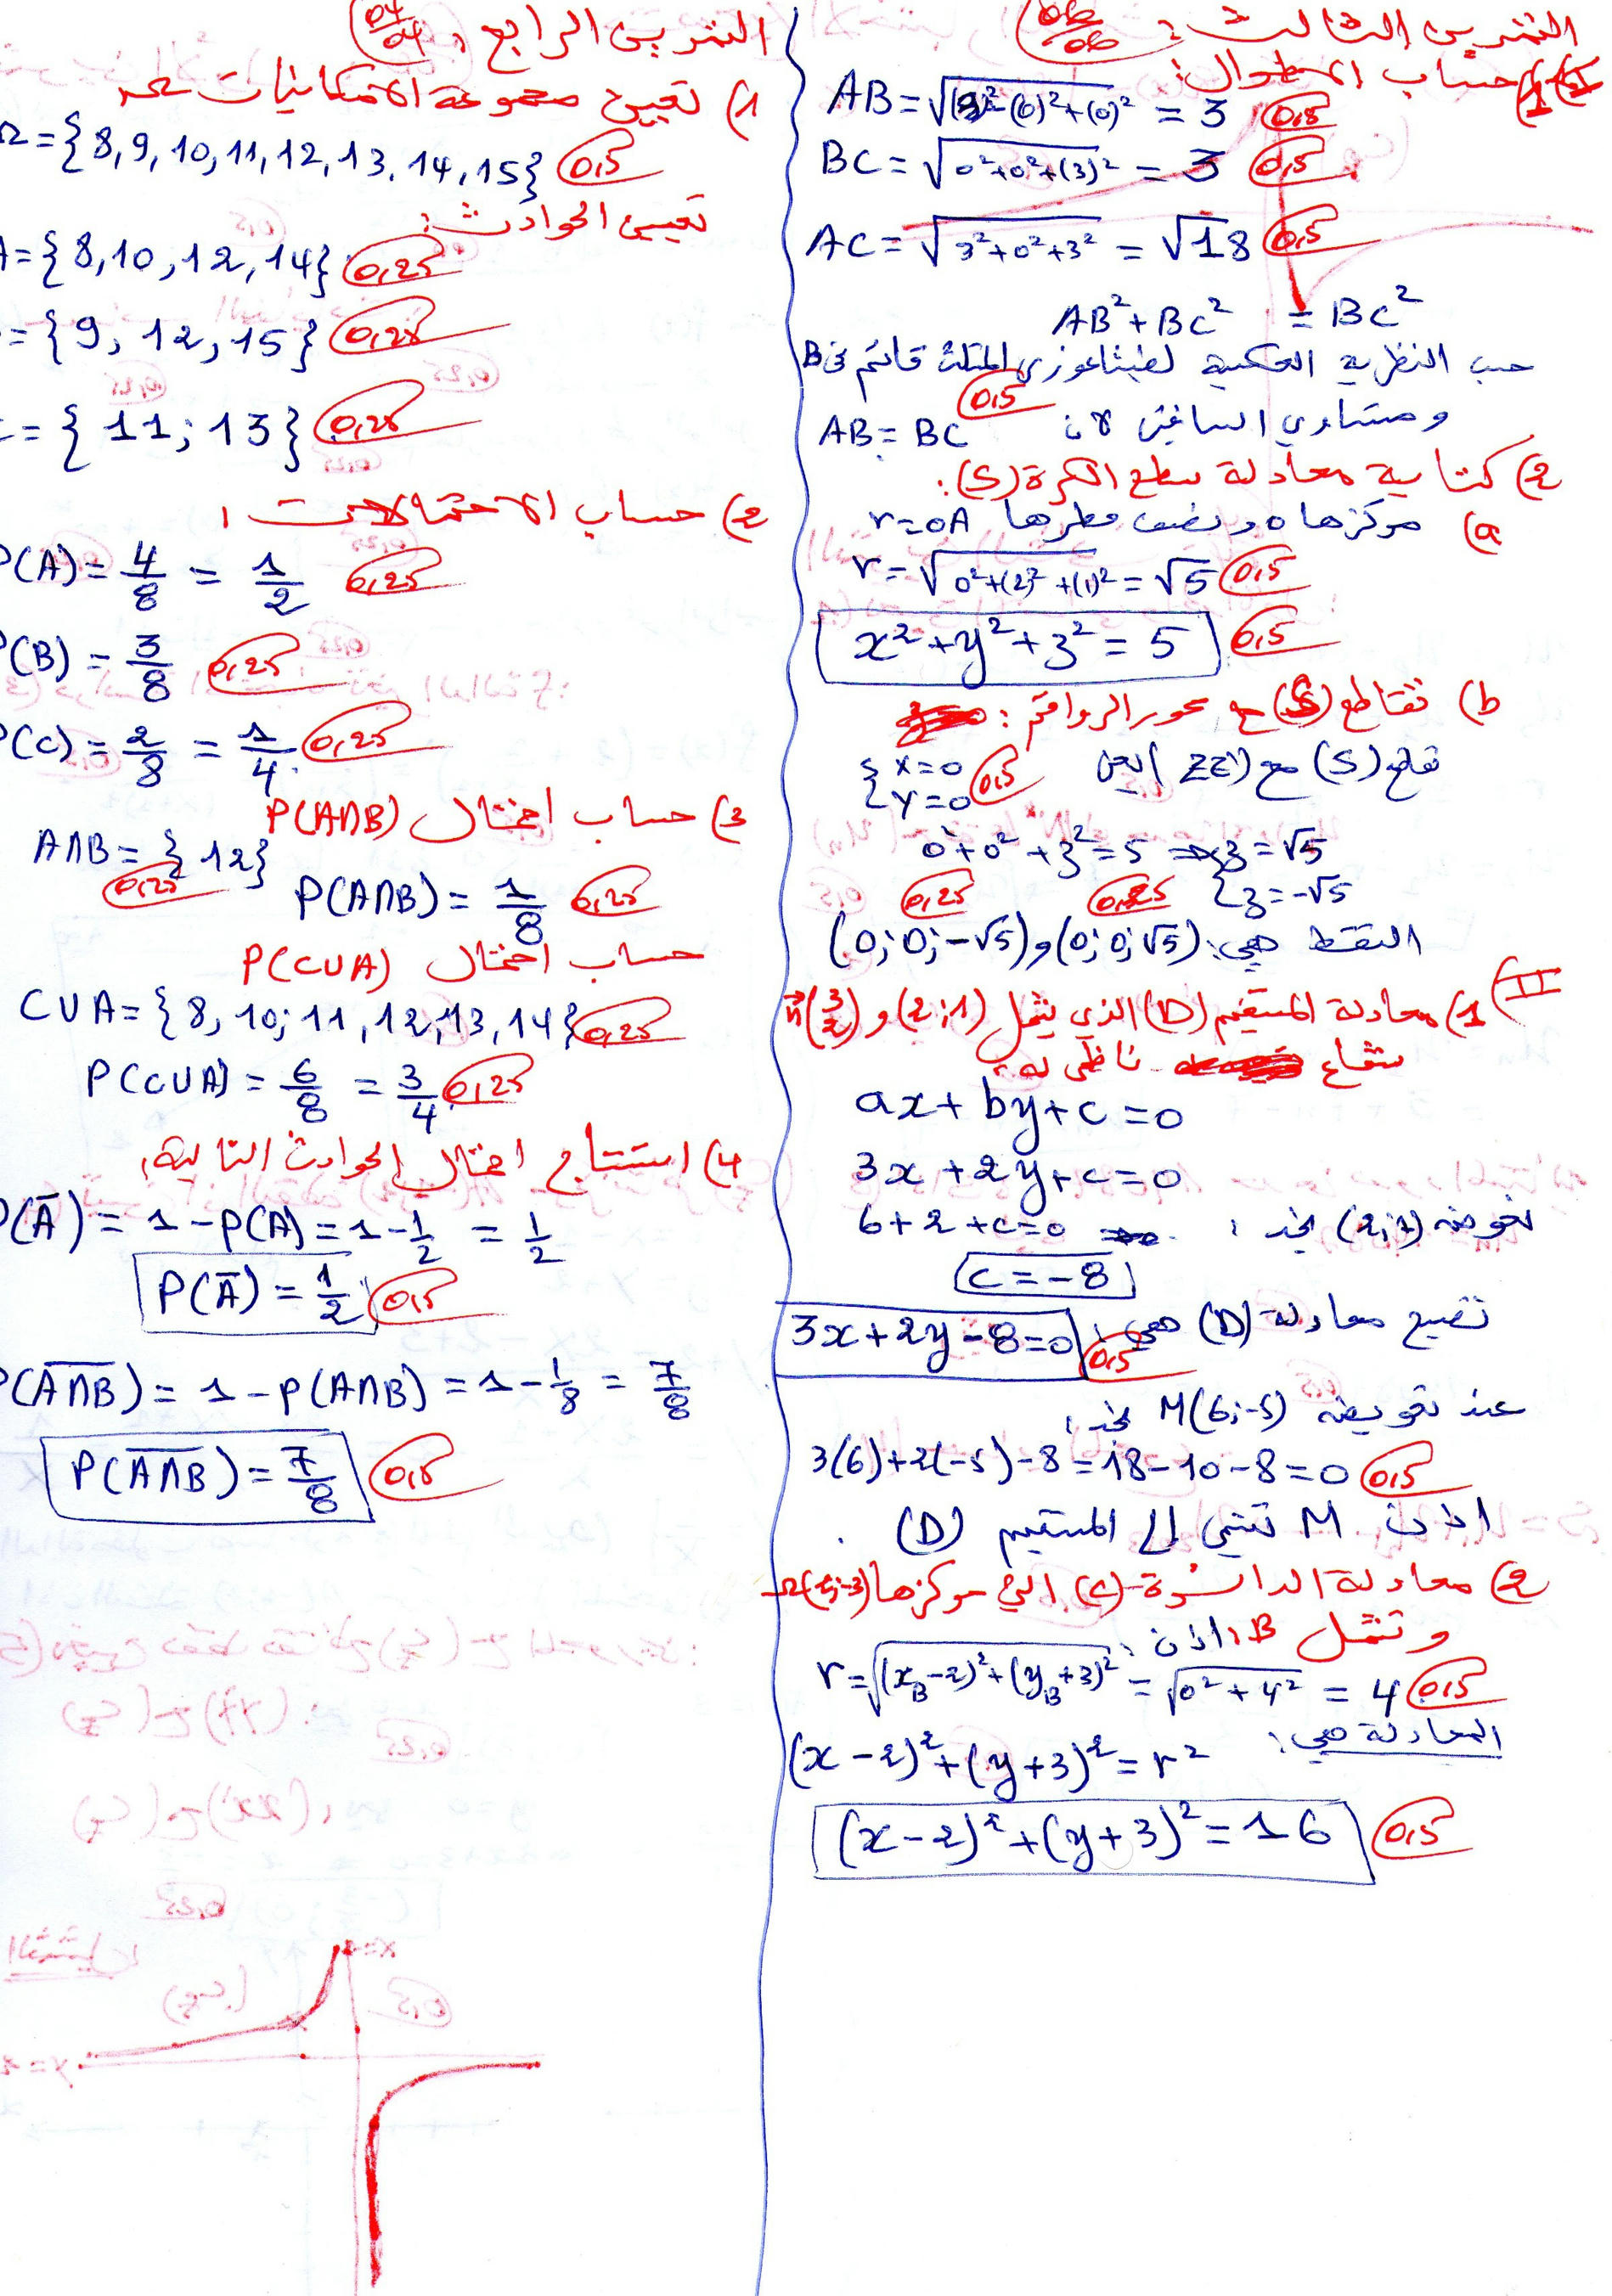 التمرين الثالث: 06/06
I) 1) حساب الأطوال:
AB = √((3)²-(0)²+(0)² = 3 0,5
BC = √(0²+0²+(3)² = 3 0,5
AC = √(3²+0²+3² = √18 0,5
AB² + BC² = BC²
حسب النظرية العكسية لفيثاغورس المثلث قائم في B
ومتساوي الساقين لأن AB = BC 0,5
2) كتابة معادلة سطح الكرة (S):
a) مركزها o ونصف قطرها r = OA
r = √(0²+(2)²+(1)² = √5 0,5
x² + y² + z² = 5 0,5
b) تقاطع (S) مع محور الرواقم:
تقاطع (S) مع (ZZ') يعني { x=0 y=0 0,5
0²+0²+z² = 5 ⇒ { z = √5
z = -√5
0,25 0,25
النقط هي: (0;0;√5) و (0;0;-√5)
II) 1) معادلة المستقيم (D) الذي يشمل (2;1) و n(3 2)
شعاع ناظمي له:
ax + by + c = 0
3x + 2y + c = 0
نعوض (2;1) نجد: 6+2+c=0
c = -8
تصبح معادلة (D) هي: 3x+2y-8=0 0,5
عند تعويض M(6;-5) نجد:
3(6)+2(-5)-8 = 18-10-8 = 0 0,5
اذن M تنتمي إلى المستقيم (D).
2) معادلة الدائرة (C) التي مركزها Ω(2;-3)
وتشمل B، اذن:
r = √((x_B-2)²+(y_B+3)² = √(0²+4² = 4 0,5
المعادلة هي:
(x-2)²+(y+3)² = r²
(x-2)²+(y+3)² = 16 0,5
التمرين الرابع: 04/04
1) تعيين مجموعة الامكانيات
Ω = {8,9,10,11,12,13,14,15} 0,5
تعيين الحوادث:
A = {8,10,12,14} 0,25
= {9,12,15} 0,25
= {11;13} 0,25
2) حساب الاحتمالات:
P(A) = 4/8 = 1/2 0,25
P(B) = 3/8 0,25
P(C) = 2/8 = 1/4 0,25
3) حساب احتمال P(A∩B)
A∩B = {12} 0,25
P(A∩B) = 1/8 0,25
حساب احتمال P(C∪A)
C∪A = {8,10;11,12,13,14} 0,25
P(C∪A) = 6/8 = 3/4 0,25
4) استنتاج احتمال الحوادث التالية:
P(A̅) = 1-P(A) = 1-1/2 = 1/2
P(A̅) = 1/2 0,5
P(A̅∩̅B̅) = 1-P(A∩B) = 1-1/8 = 7/8
P(A̅∩̅B̅) = 7/8 0,5